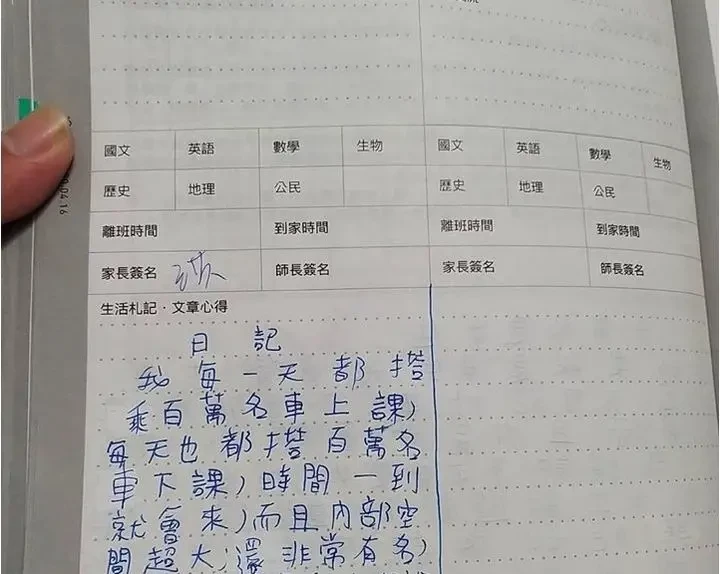 國文 英語 數學 生物 國文 英語 數學 生物
歷史 地理 公民 歷史 地理 公民
離班時間 到家時間 離班時間 到家時間
家長簽名 師長簽名 家長簽名 師長簽名
生活札記．文章心得
日記
我每一天都搭
乘百萬名車上課，
每天也都搭百萬名
車下課，時間一到
就會來，而且內部空
間超大，還非常有名，